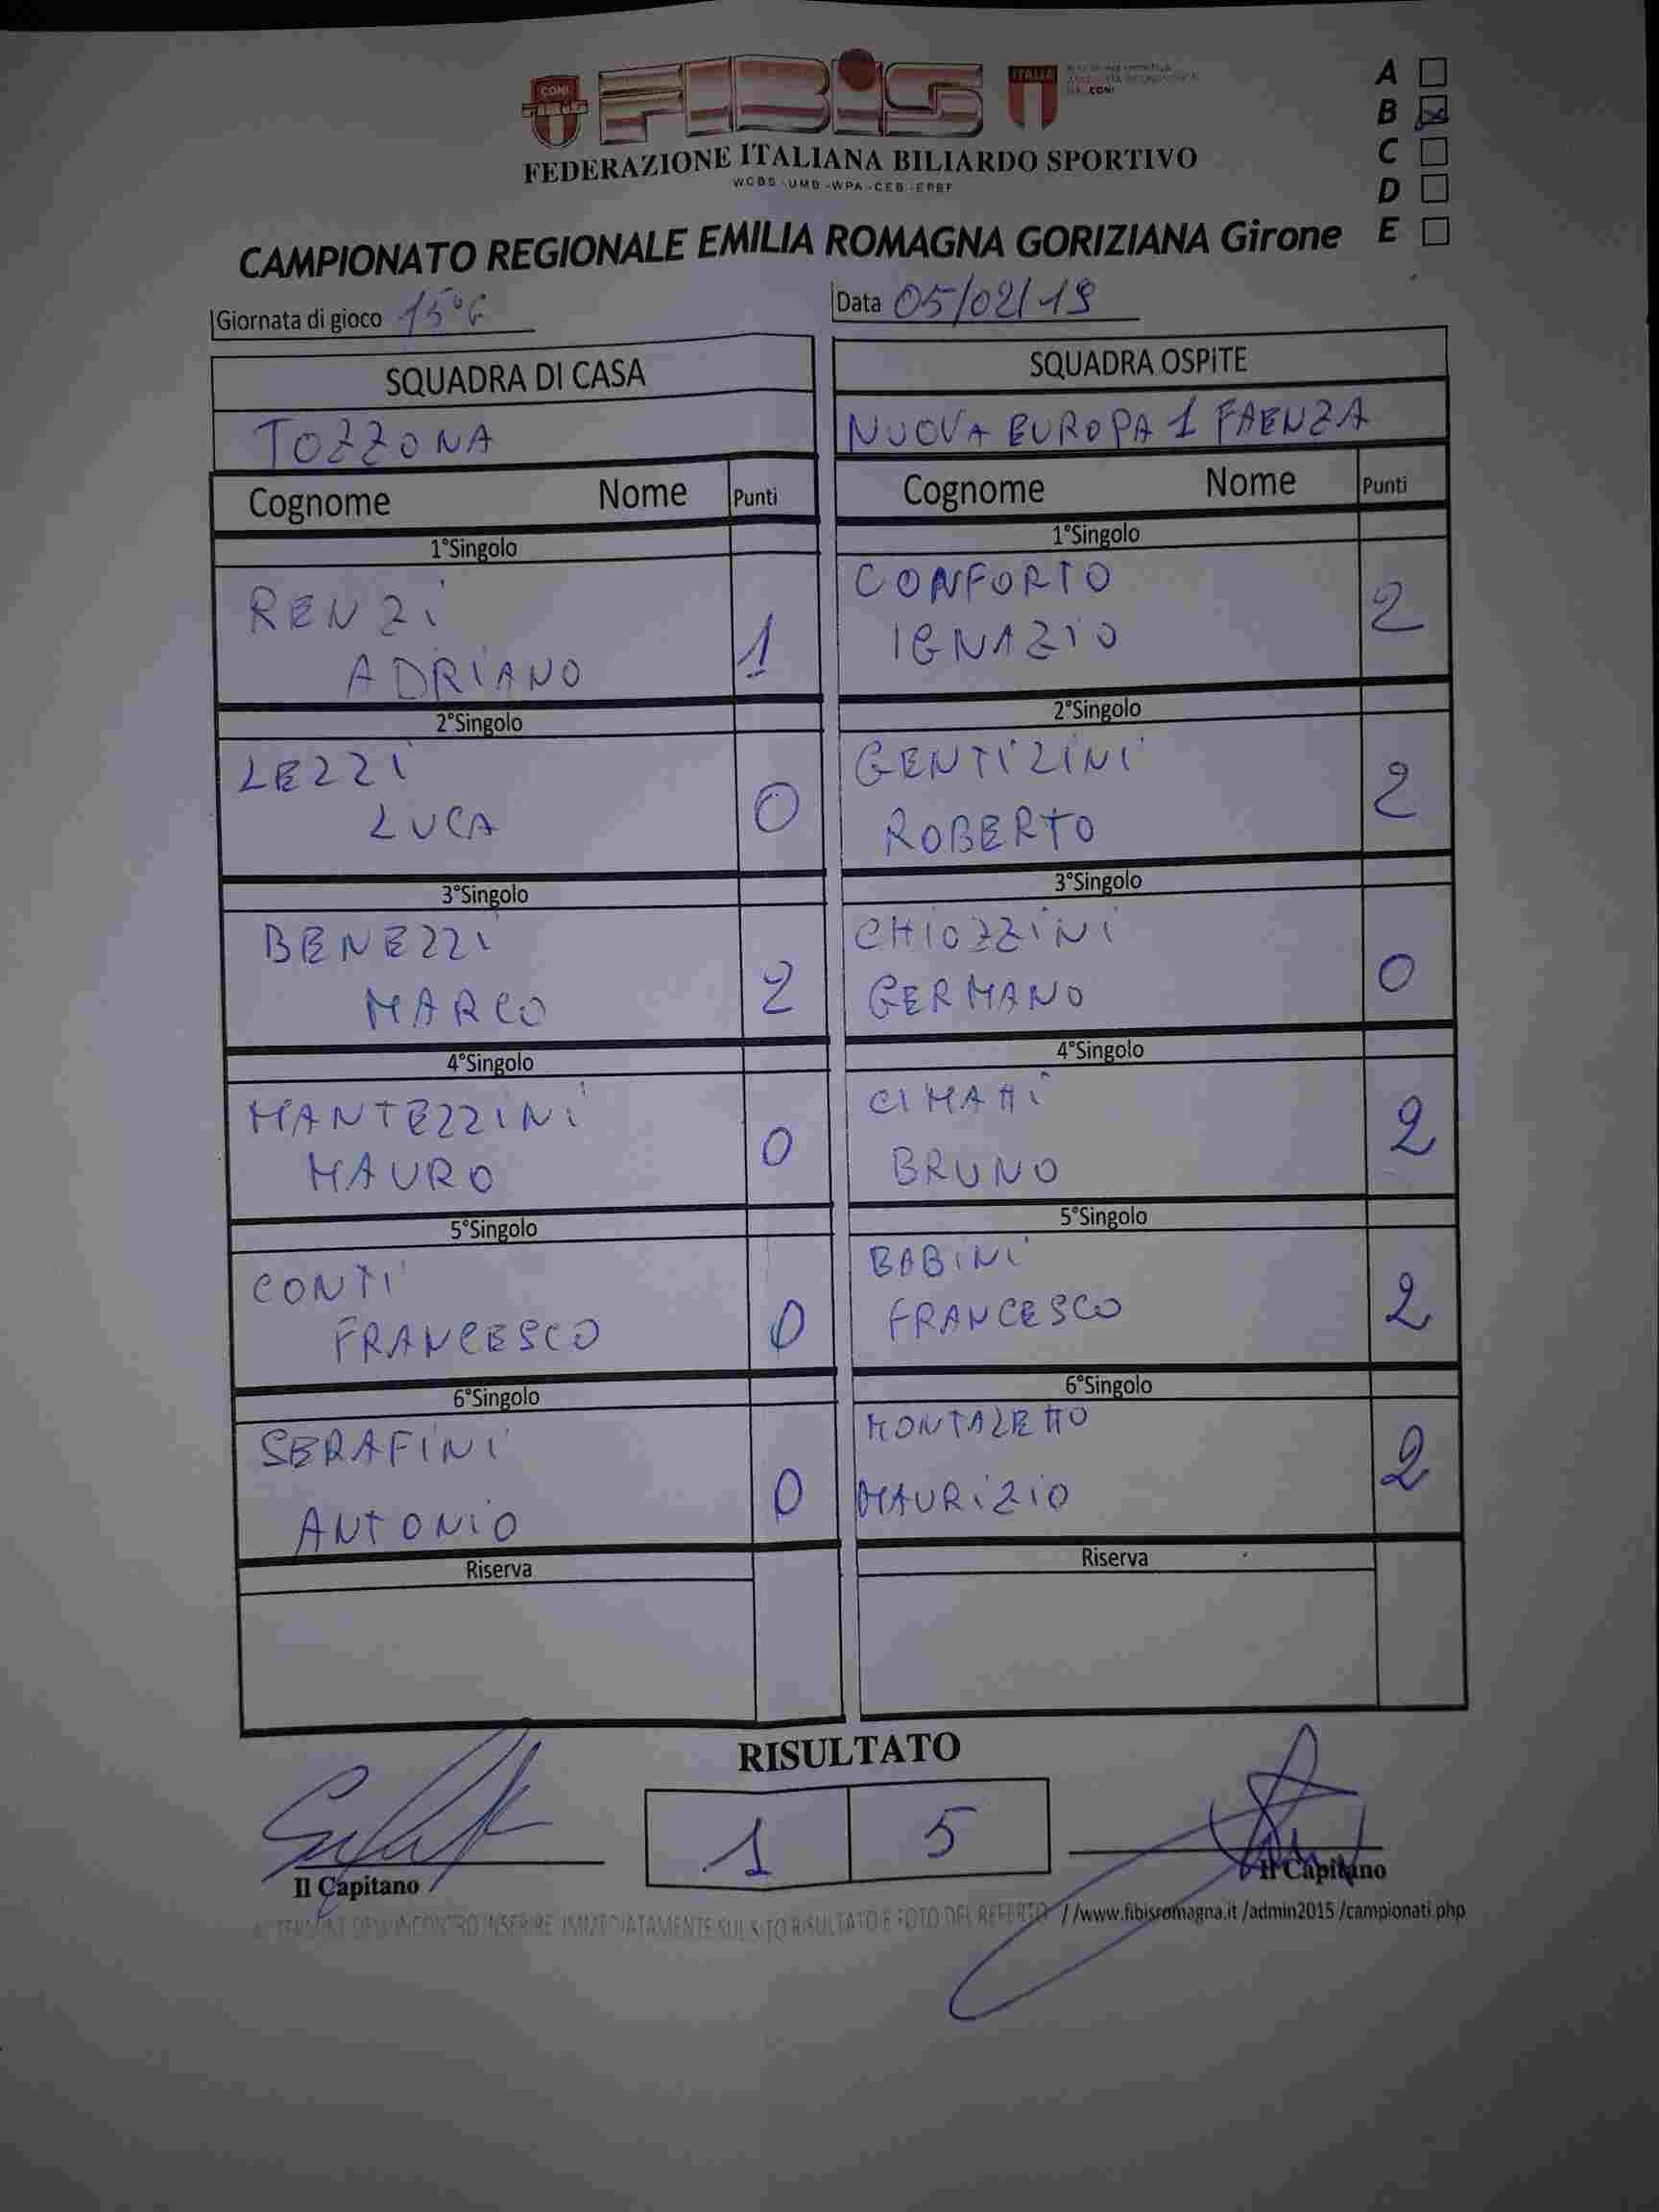 CONI
FIBiS
ITALIA
CONI
FEDERAZIONE ITALIANA BILIARDO SPORTIVO
WCBS - UMB - WPA - CEB - EPBF
A
B
C
D
E
CAMPIONATO REGIONALE EMILIA ROMAGNA GORIZIANA Girone
Giornata di gioco 15°G
Data 05/02/19
SQUADRA DI CASA
SQUADRA OSPiTE
TOZZONA
NUOVA EUROPA 1 FAENZA
Cognome Nome Punti
Cognome Nome Punti
1°Singolo
1°Singolo
RENZI
ADRIANO 1
CONFORTO
IGNAZIO 2
2°Singolo
2°Singolo
LEZZI
LUCA 0
GENTILINI
ROBERTO 2
3°Singolo
3°Singolo
BENEZZI
MARCO 2
CHIOZZINI
GERMANO 0
4°Singolo
4°Singolo
MANTEZZINI
MAURO 0
CIMATTI
BRUNO 2
5°Singolo
5°Singolo
CONTI
FRANCESCO 0
BABINI
FRANCESCO 2
6°Singolo
6°Singolo
SERAFINI
ANTONIO 0
MONTALETTO
MAURIZIO 2
Riserva
Riserva
RISULTATO
1 5
Il Capitano
Il Capitano
TERMINE DELL'INCONTRO INSERIRE IMMEDIATAMENTE SUL SITO RISULTATO E FOTO DEL REFERTO //www.fibisromagna.it /admin2015 /campionati.php